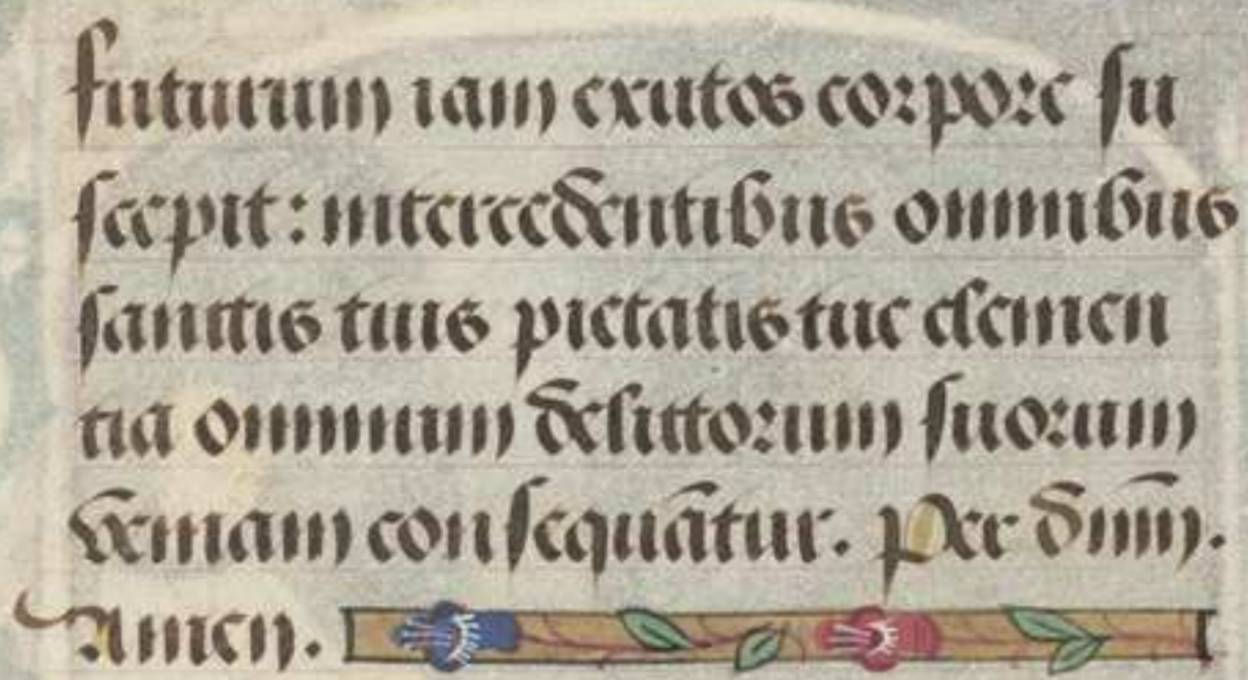 futurum iam exutos corpore su
scepit: intercedentibus omnibus
sanctis tuis pietatis tue clemen
tia omnium delictorum suorum
veniam consequātur. Per dn̄m.
Amen.